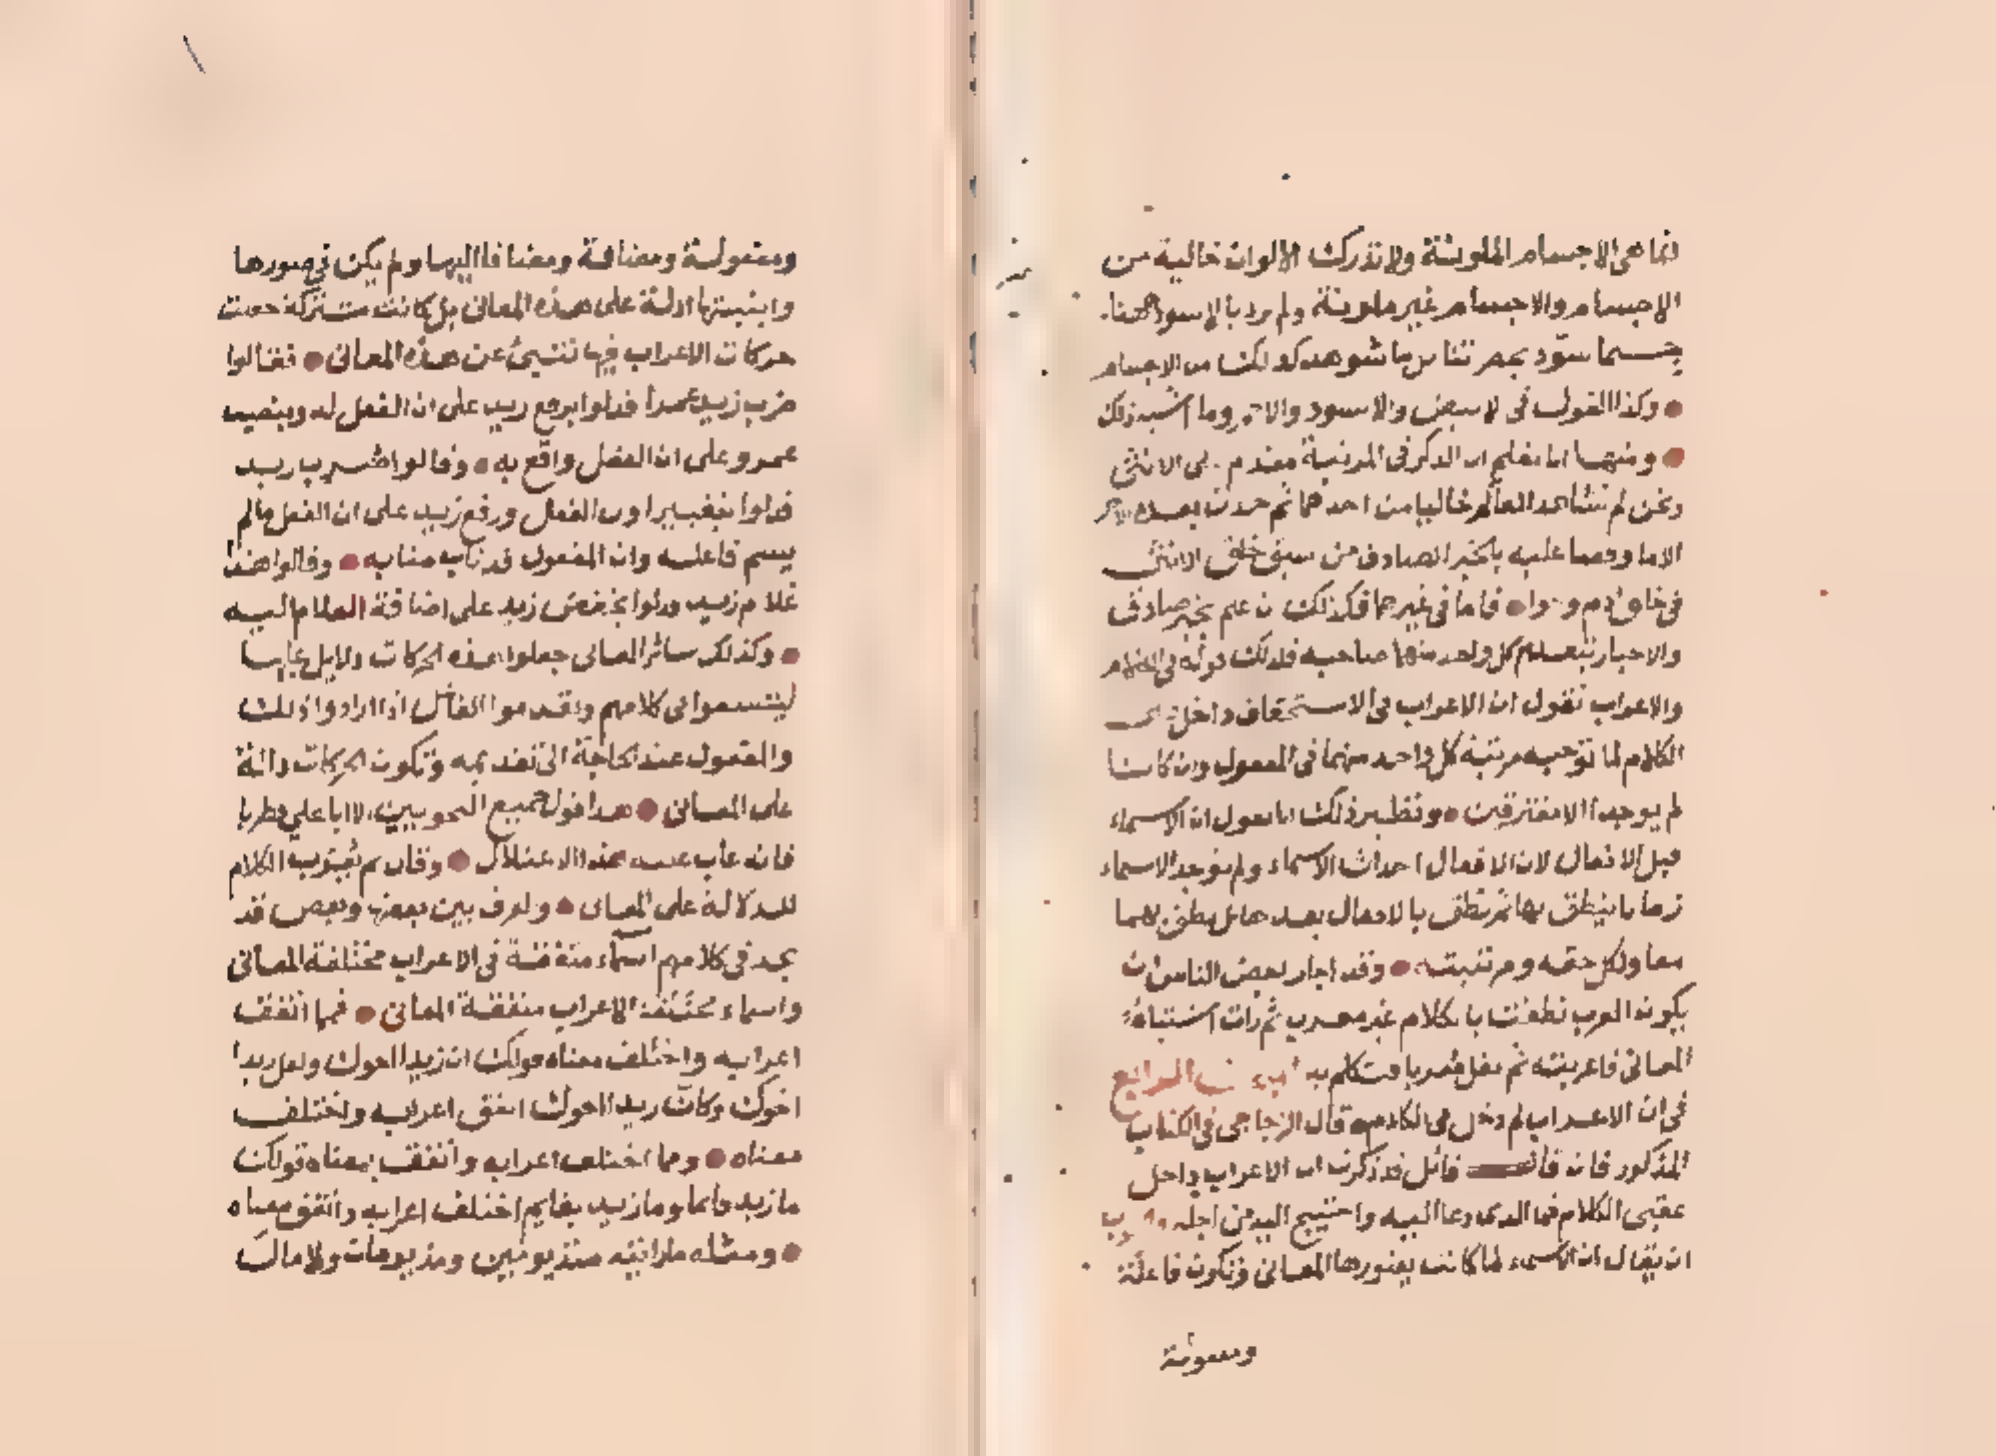 انما هي الاجسام الملونة ولا ندرك الالوان خالية من
الاجسام والاجسام غير ملونة ولم يرد بالاسود هاهنا
جسما سود بحضرتنا بل ما شوهد كذلك من الاجسام
وكذا القول في الابيض والاسود والاحمر وما اشبه ذلك
ومنها انا نعلم ان الذكر في المرتبة مقدم على الانثى
ونحن لم نشاهد العالم خاليا من احدهما ثم حدث بعده الاخر
الا ما وقفنا عليه بالخبر الصادق من سبق خلق الانثى
في خلق ادم وحوا فاما في غيرهما فكذلك ان علم بخبر صادق
والاخبار كل واحد منهما صاحبه فلذلك في الكلام
والاعراب نقول ان الاعراب في الاستحقاق داخل على
الكلام لما توجبه مرتبة كل واحد منهما في المعقول وان كانا
لم يوجدا الا مفترقين ونظير ذلك انا نقول ان الاسماء
قبل الافعال لان الافعال احداث الاسماء ولم توجد الاسماء
زمانا ينطق بها ثم نطق بالافعال بعد بل نطق بهما
معا ولكل حقه ومرتبته وقد اجاز بعض الناس ان
يكون العرب نطقت بالكلام غير معرب ثم رات اشتباه
المعاني فاعربته ثم نقل معربا فتكلم به الرابع
في ان الاعراب لم دخل في الكلام قال الزجاجي في الكتاب
المذكور فان قال قائل قد ذكرت ان الاعراب داخل
عقيب الكلام فما الذي دعا اليه واحتيج اليه من اجله
ان يقال ان الاسماء لما كانت يعتورها المعاني وتكون فاعلة
ومفعولة
ومفعولة ومضافة ومضافا اليها ولم يكن في صورها
وابنيتها ادلة على هذه المعاني بل كانت مشتركة جعلت
حركات الاعراب فيها تنبئ عن هذه المعاني فقالوا
ضرب زيد عمرا فدلوا برفع زيد على ان الفعل له وبنصب
عمرو على ان الفعل واقع به وقالوا ضرب زيد
فدلوا بتغيير اول الفعل ورفع زيد على ان الفعل مالم
يسم فاعله وان المفعول قد ناب منابه وقالوا هذا
غلام زيد ودلوا بخفض زيد على اضافة الغلام اليه
وكذلك سائر المعاني جعلوا هذه الحركات دلايل عليها
ليتسعوا في كلامهم ويقدموا الفاعل اذا ارادوا ذلك
والمفعول عند الحاجة الى تقديمه وتكون الحركات دالة
على المعاني هذا قول جميع النحويين الا ابا علي قطربا
فانه عاب عليه هذا الاعتلال وقال لم يعرب الكلام
للدلالة على المعاني والفرق بين بعضها وبعض قد
نجد في كلامهم اسماء متفقة في الاعراب مختلفة المعاني
واسماء مختلفة الاعراب متفقة المعاني فما اتفقت
اعرابه واختلف معناه قولك ان زيدا اخوك ولعل زيدا
اخوك وكان زيدا اخوك اتفق اعرابه واختلف
معناه ومما اختلف اعرابه واتفق معناه قولك
ما زيد قائما وما زيد بقايم اختلف اعرابه واتفق معناه
ومثله ما رايته منذ يومين ومذ يومان ولا مال